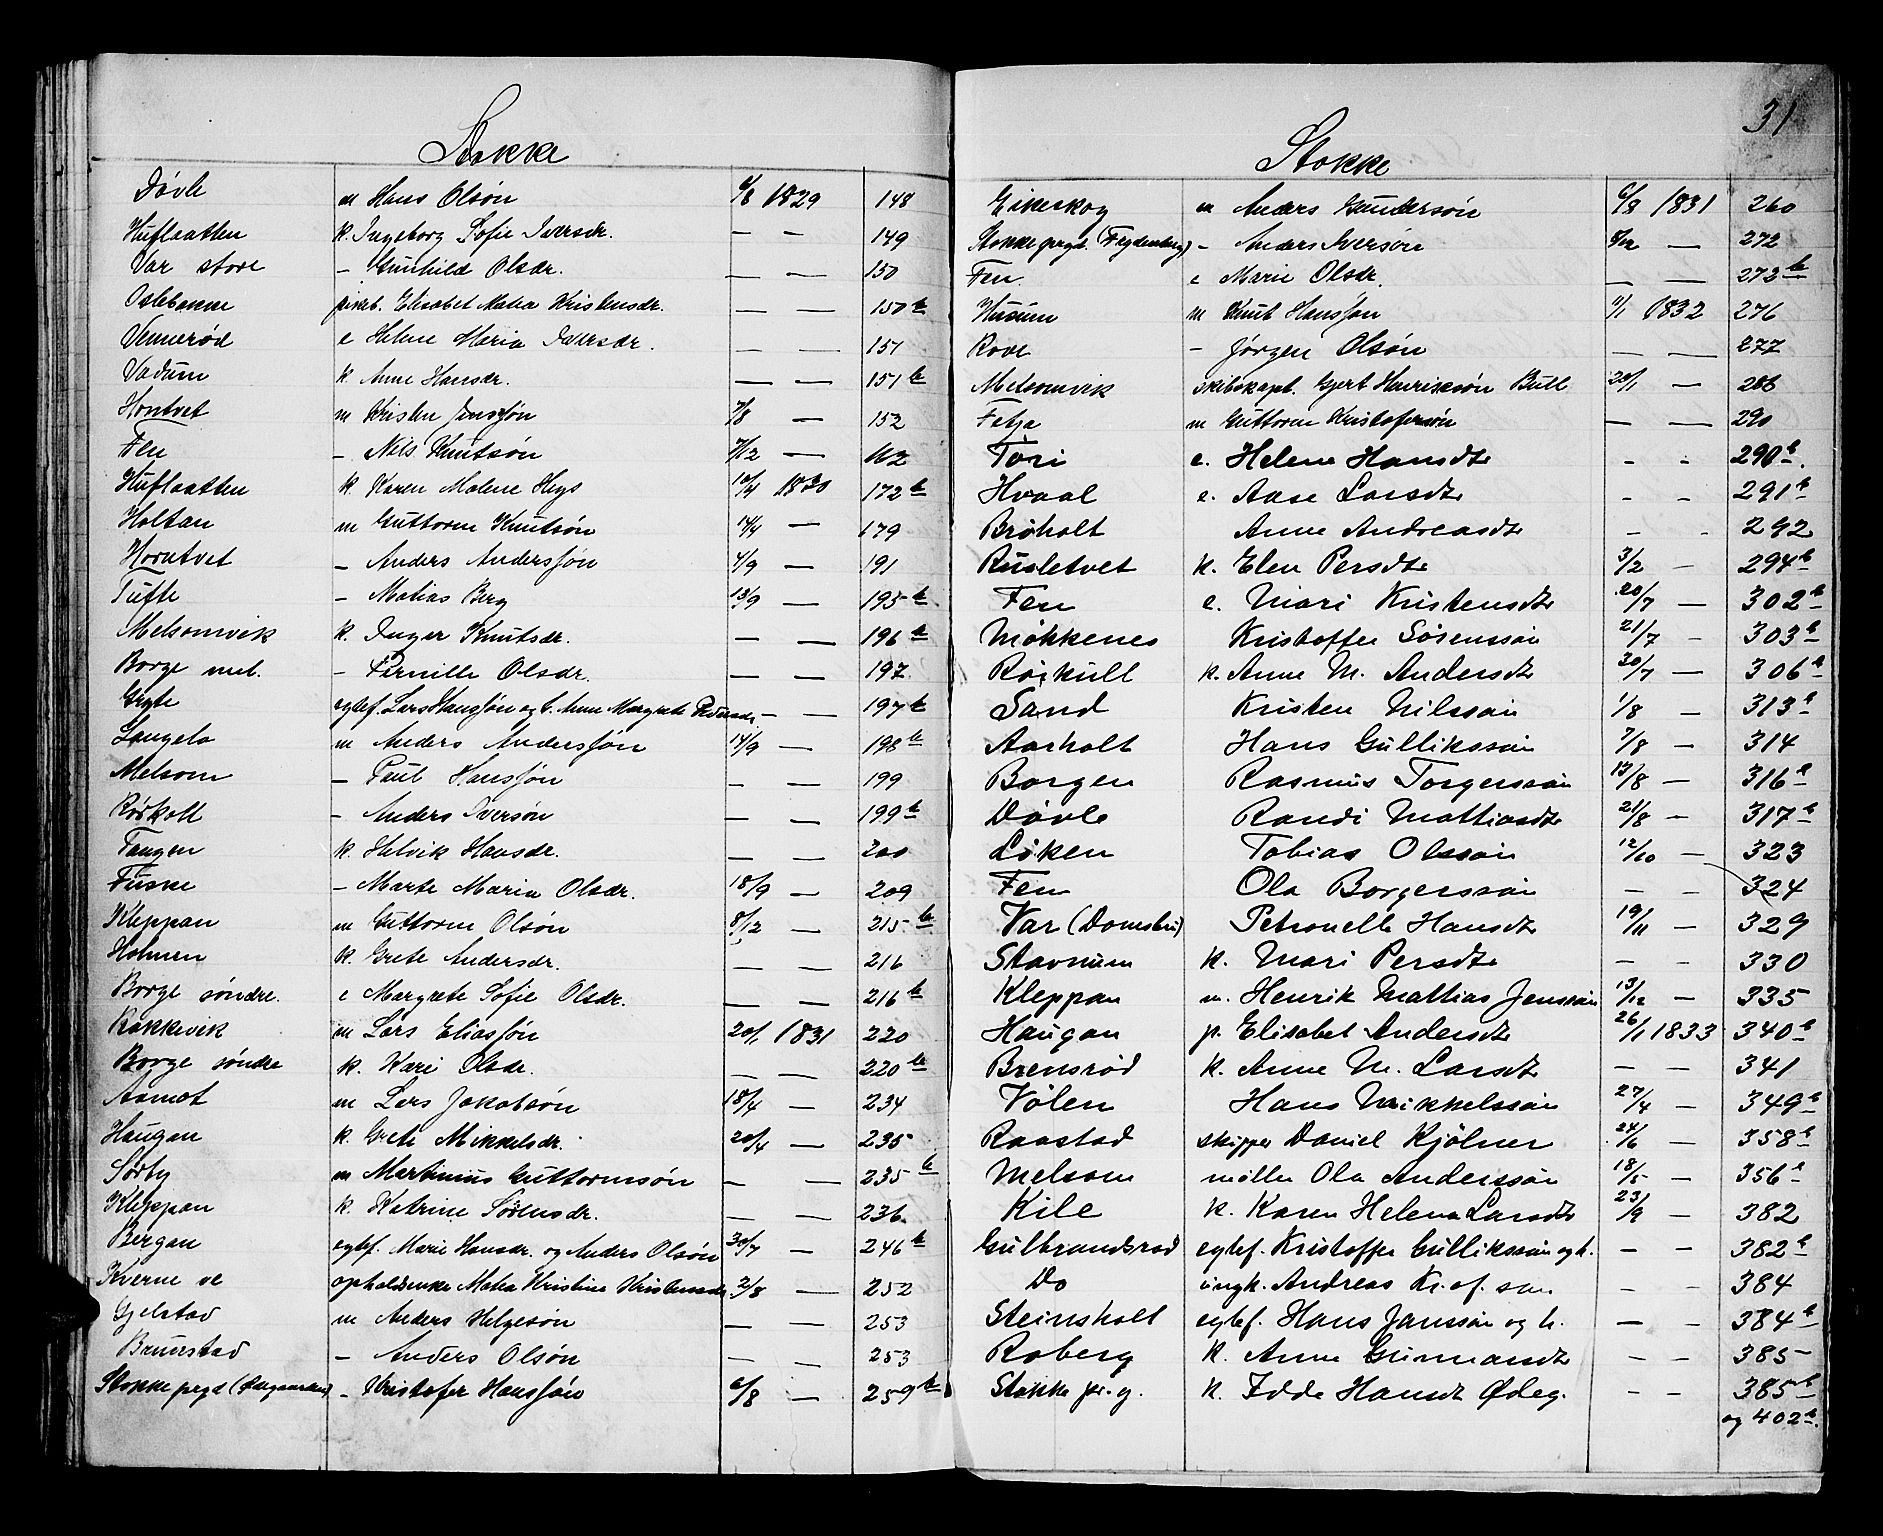 Stokke
Døvle m Hans Olsøn 6/8 1829 148
Huflaatten k. Ingeborg Sofie Iversdr. — — 149
Var store – Gunhild Olsdr. — — 150
Oslebakke Elisabet Matea Kristensdr. — — 150 b
Vennerød e Helene Maria Iversdr. — — 151
Vadum k Anne Hansdr. — — 151 b
Hontvet m Kristen Jensføn 7/8 — 152
Fen – Nils Knutsøn 7/12 — 162
Huflaatten k. Karen Malene Heys 10/4 1830 172 b
Holtan m Guttorm Knutsøn 14/4 — 179
Horntvet – Anders Andersføn 4/9 — 191
Tufte – Matias Berg 13/9 — 195 b
Melsomvik k. Inger Knutsdr. — — 196 b
Borge mel. – Pernille Olsdr. — — 197
Gryte egtef. Lars Hansføn og k. Anne Margrete Pedersdr — — 197 b
Langelo m Anders Andersføn 14/9 — 198 b
Melsom – Paul Hansføn – — 199
Rørkoll – Anders Iversøn — — 199 b
Tangen k. Helvik Hansdr. — — 200
Fuske – Marte Maria Olsdr. 18/9 — 209
Kleppan m Guttorm Olsøn 8/12 — 215 b
Holmen k. Grete Andersdr. — — 216
Borge søndre. e Margrete Sofie Olsdr. — — 216 b
Rakkevik m Lars Eliasføn 20/1 1831 220
Borge søndre k. Kari Olsdr. — — 220 b
Aamot m Lars Jakobsøn 18/4 — 234
Haugan k. Grete Mikkelsdr. 20/4 — 235
Sørby m Martinius Guttormsøn — — 235 b
Kleppan k. Katrine Sørensdr. — — 236
Bergan egtef. Marie Hansdr. og Anders Olsøn 30/7 — 246 b
Kverne ve opholdsenke Matea Kristine Kristensdr 2/8 — 252
Gjelstad m Anders Helgesøn — — 253
Brunstad – Anders Olsøn — — 253
Stokke prgd (Ødegaarden) – Kristofer Hansføn 6/8 — 259 b
31
Stokke
Eikeskog m Anders Gundersøn 6/8 1831 260
Stokke prgd. (Feydenberg) – Anders Iversøn 5/12 — 272
Fen e Marie Olsdr. — — 272 b
Husum m Knut Hansføn 11/1 1832 276
Rove – Jørgen Olsøn — — 277
Melsomvik skibskapt. Gjert Henriksøn Bull 20/1 — 288
Fetja m Guttorm Kristofersøn — — 290
Tøri e. Helene Hansdtr - - 290 b.
Hvaal e. Aase Larsdtr - - 291 b
Brøholt Anne Andreasdtr - - 292
Rusletvet k. Elen Persdtr 3/2 – 294 b
Fen e. Mari Kristensdtr 20/7 — 302 b
Møkkenes Kristoffer Sørenssøn 21/7 – 303 b
Røikull k. Anne M. Andersdtr 30/7 — 306 b
Sand Kristen Nilssøn 1/8 — 313 b
Aarholt Hans Gullikssøn 7/8 — 314
Borgen Rasmus Torgerssøn 13/8 — 316 b
Døvle Randi Mattiasdtr 21/8 — 317 b
Løken Tobias Olssøn 12/10 – 323
Fen Ola Borgerssøn – – 324
Var (Domsbru) Petronelle Hansdtr 19/11 — 329
Stavnum k. Mari Persdtr – – 330
Kleppan m. Henrik Mattias Jenssøn 13/12 – 335
Haugan p. Elisabet Andersdtr 26/1 1833 340 b
Brensrød k. Anne M. Larsdtr – – 341
Volen Hans Mikkelssøn 27/4 — 349 b
Raastad skipper Daniel Kjølner 24/6 — 358 b
Melsom møller Ola Anderssøn 18/5 — 356 b
Kile k. Karen Helena Larsdtr 23/9 — 382
Gulbrandsrød egtef. Kristoffer Gullikssøn og h. – – 382 b
Do ungk. Andreas Kr. of. søn - - 384
Steinsholt egtef. Hans Janssøn og h. — — 384 b
Roberg k. Anne Gunnarsdtr – – 385
Stokke pr. g. k. Idde Hansdt Ødeg. - - 385 b
og 402 b.